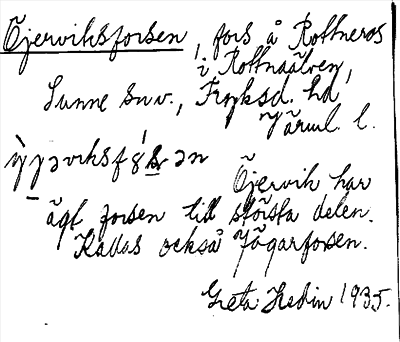 Öjerviksforsen, fors å Rottneros
i Rottnaälven,
Sunne snv., Fryksd. hd,
Värml. l.
Öjervik har
ägt forsen till största delen.
Kallas också Jägarforsen.
Greta Hedin 1935.